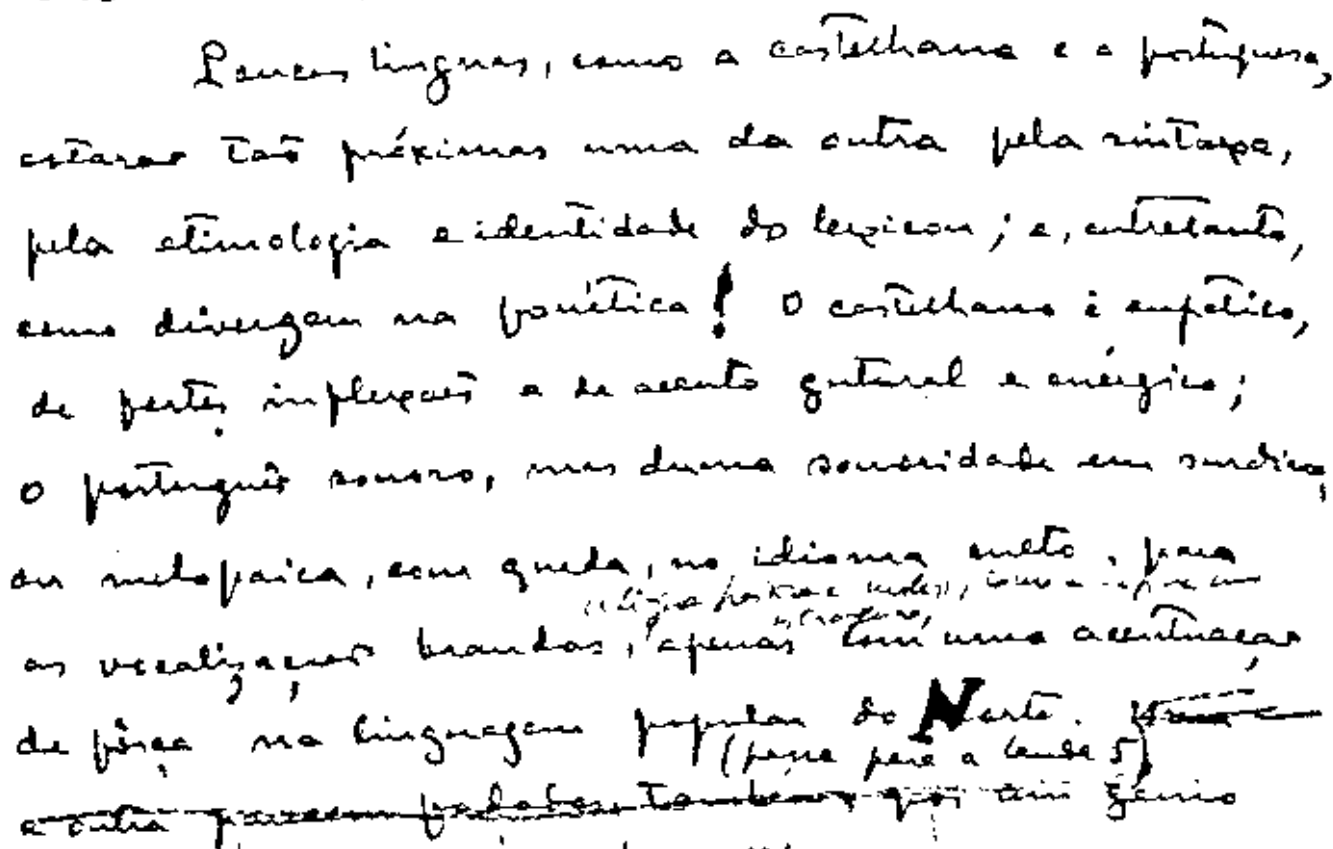 Poucas linguas, como a castelhana e a portuguesa,
estarao tão próximas uma da outra pela sintaxe,
pela etimologia e identidade do lexicon; e, entretanto,
como divergem na fonética! O castelhano é enfático,
de fortes inflexoes e de acento gutural e enérgico;
o português sonoro, mas duma sonoridade em surdina,
ou melopaica, com queda, no idioma culto, para
as vocalizações brandas, apenas com uma acentuação
de fôrça na linguagem popular do Norte.
(passa para a lauda 5)
e outra parecem fadadas tambem por um génio